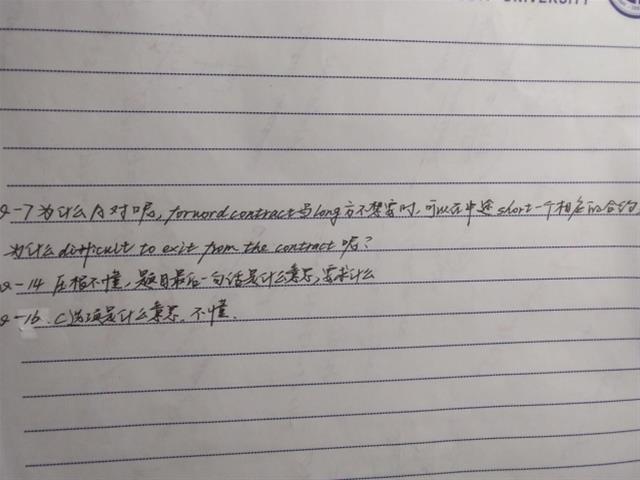 UNIVERSITY
-7 为什么A对呢，forword contract当long方不想要时，可以在中途short一个相应的合约
为什么difficult to exit from the contract呢？
-14 压根不懂，题目最后一句话是什么意思，要求什么
-16. C选项是什么意思，不懂.